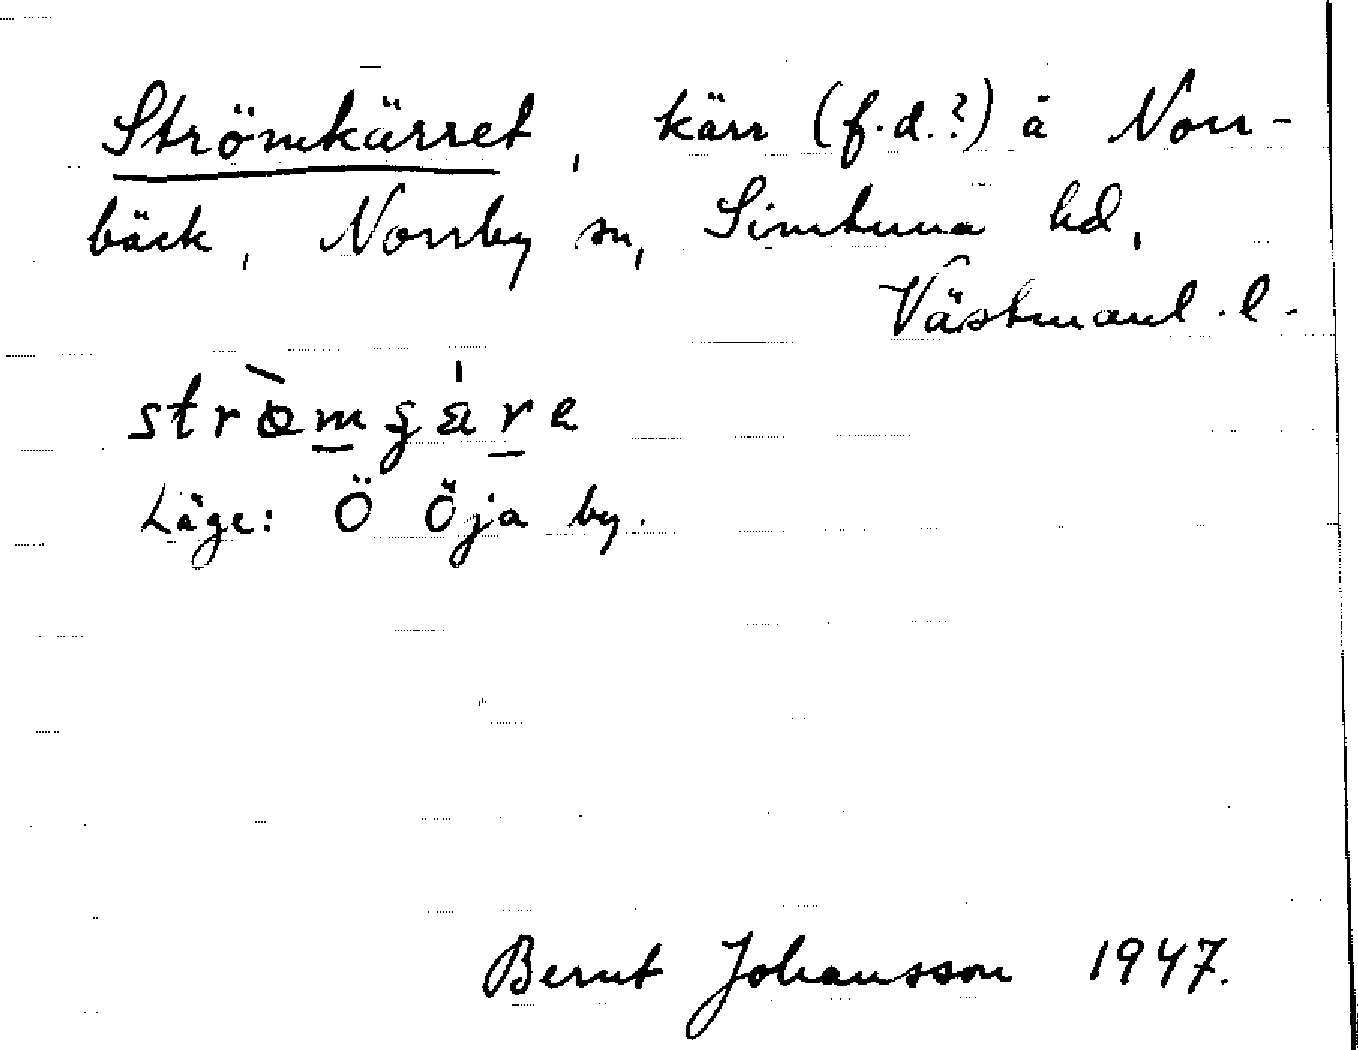 Strömkärret, kärr (f.d.?) å Norr-
bäck, Norrby sn, Simtuna hd,
Västmanl. l.
strö̀mgä́re
Läge: Ö Öja by.
Bernt Johansson 1947.